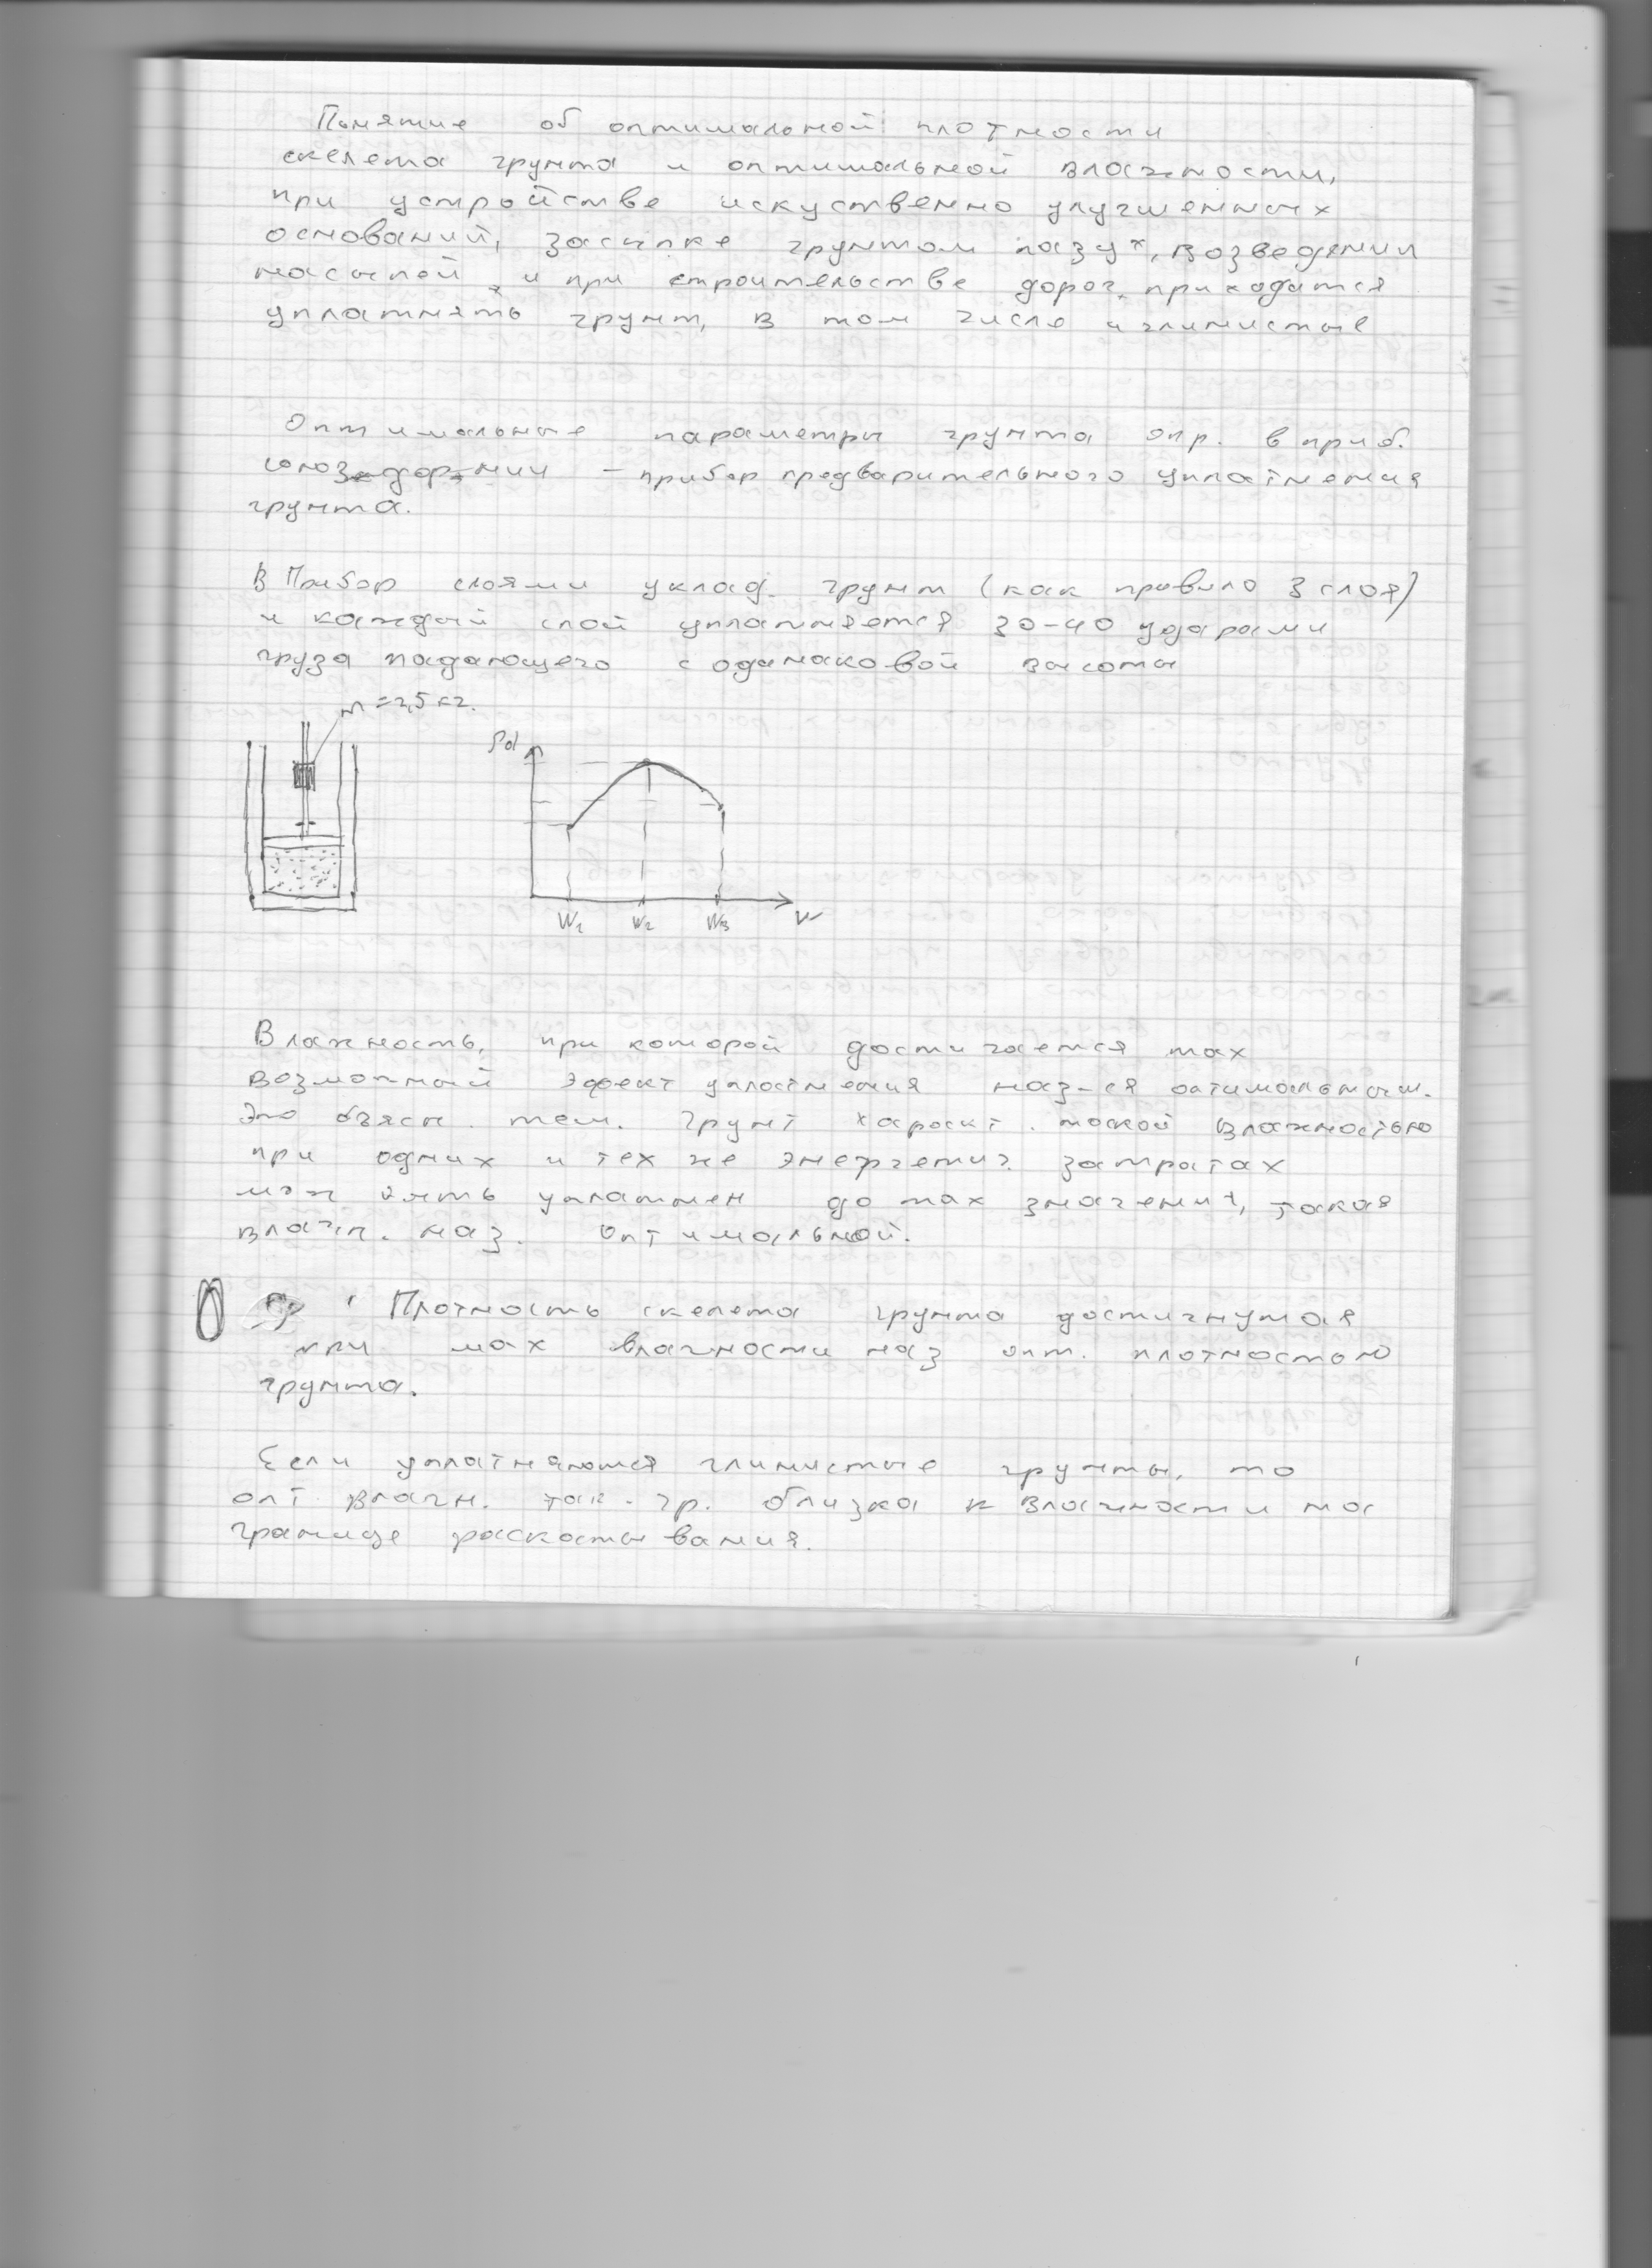 Понятие об оптимальной плотности
скелета грунта и оптимальной влажности,
при устройстве искуственно улучшенных
оснований, засыпке грунтом пазух, возведении
насыпей, и при строительстве дорог, приходится
уплатнять грунт, в том числе и глинистые
Оптимальные параметры грунта опр. в приб.
союздорнии – прибор предварительного уплатнения
грунта.
В Прибор слоями уклад. грунт (как правило 3 слоя)
и каждый слой уплатняется 30-40 ударами
груза падающего с одинаковой высоты
m = 2,5 кг.
ρd
W1 W2 W3 W
Влажность, при которой достигается max
возможный эффект уплотнения наз-ся оптимальным.
Это объясн. тем. Грунт характ. такой влажностью
при одних и тех же энергетич. затратах
мож быть уплатнен до max значений, такая
влажн. наз. оптимальной.
Плотность скелета грунта достигнутая
при max влажности наз опт. плотностью
грунта.
Если уплатняются глинистые грунты, то
опт влажн. так. гр. близка к влажности на
границе раскатывания.